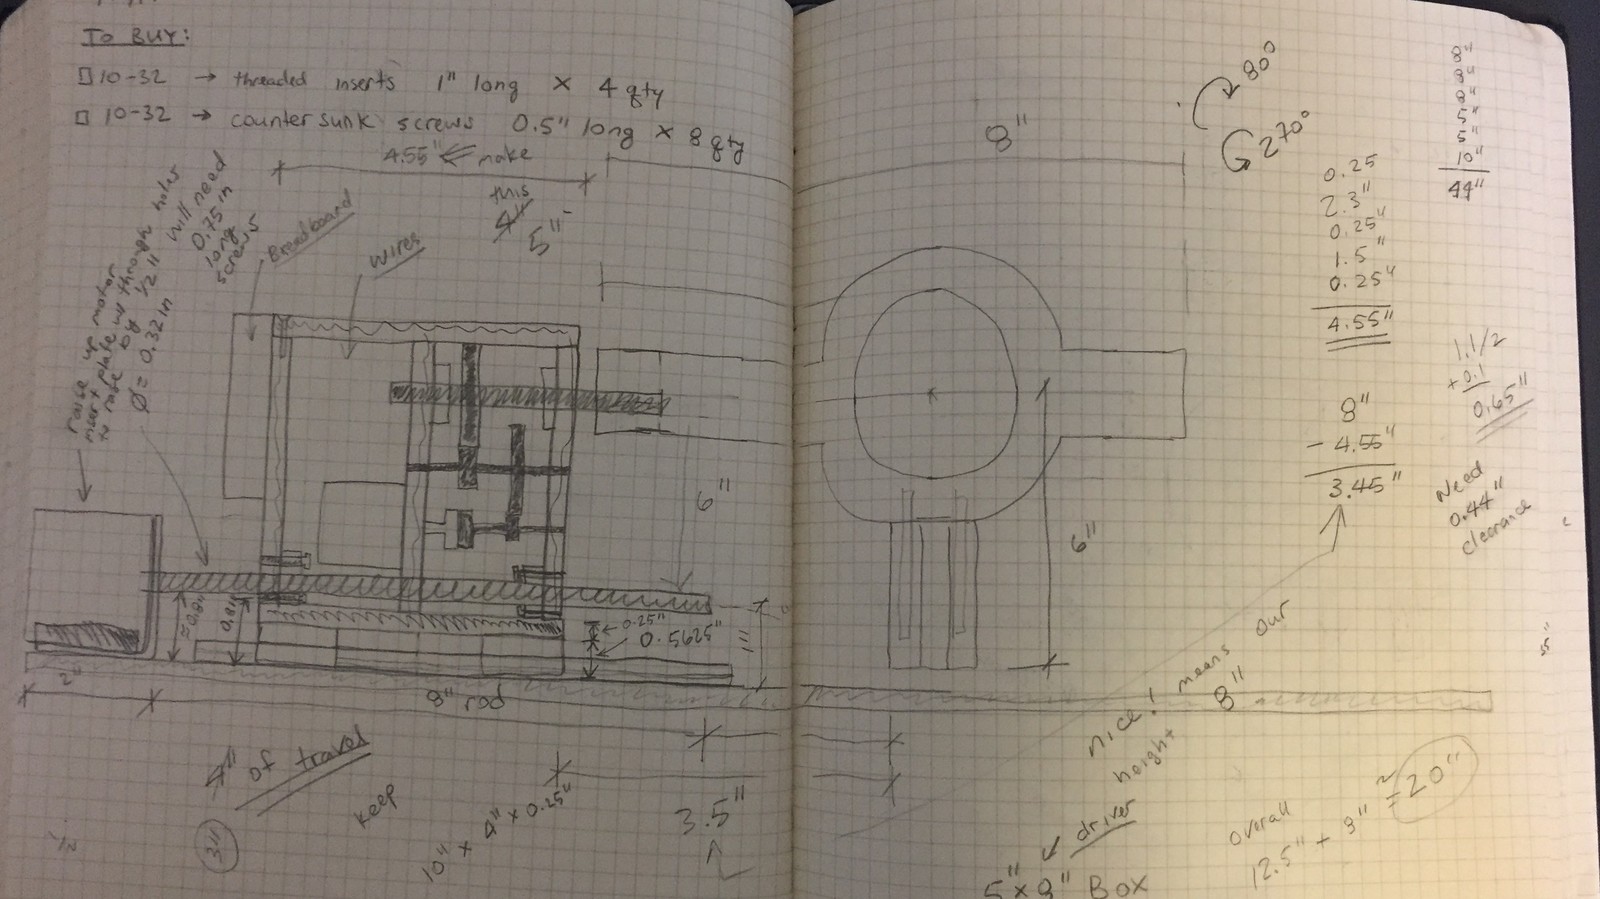 TO BUY:
□ 10-32 → threaded inserts 1" long × 4 qty
□ 10-32 → countersunk screws 0.5" long × 8 qty
4.55" ← make
this
4"
5"
raise up motor
mount plate w/ through holes
to raise by 1/2" will need
Ø = 0.32 in
0.75 in
long
screws
Breadboard
wires
6"
≈0.8"
0.81"
0.25"
0.5625"
1"
2"
8" rod
4" of travel
3"
keep
10" × 4" × 0.25"
3.5"
1/2
8"
80°
270°
0.25
2.3"
0.25"
1.5"
0.25"
4.55"
8"
8"
8"
5"
5"
10"
44"
8"
- 4.55"
3.45"
1.1/2
+0.1
0.65"
Need
0.44"
clearance
6"
nice! means our
height 8"
driver
5" × 8" Box
overall
12.5" + 8" ≈ 20"